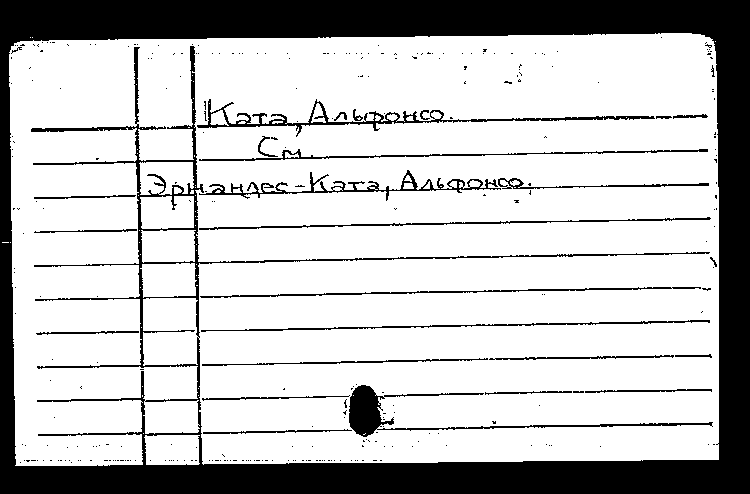 Ката, Альфонсо.
См.
Эрнандес-Ката, Альфонсо.